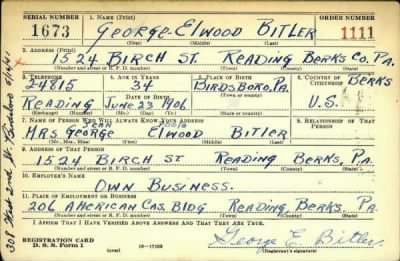 SERIAL NUMBER 1. NAME (Print) ORDER NUMBER
1673 GEORGE ELWOOD BITLER 1111
(First) (Middle) (Last)
2. ADDRESS (Print)
1524 BIRCH ST READING BERKS CO. PA.
(Number and street or R. F. D. number) (Town) (County) (State)
3. TELEPHONE 4. AGE IN YEARS 5. PLACE OF BIRTH 6. COUNTRY OF CITIZENSHIP
24815 34 BIRDSBORO, PA. BERKS
DATE OF BIRTH (Town or county)
READING JUNE 23 1906 U.S.
(Exchange) (Number) (Mo.) (Day) (Yr.) (State or country)
7. NAME OF PERSON WHO WILL ALWAYS KNOW YOUR ADDRESS 8. RELATIONSHIP OF THAT PERSON
JEAN
MRS GEORGE ELWOOD BITLER
(Mr., Mrs., Miss) (First) (Middle) (Last)
9. ADDRESS OF THAT PERSON
1524 BIRCH ST READING BERKS, PA.
(Number and street or R. F. D. number) (Town) (County) (State)
10. EMPLOYER'S NAME
OWN BUSINESS.
11. PLACE OF EMPLOYMENT OR BUSINESS
206 AMERICAN CAS. BLDG READING, BERKS, PA.
(Number and street or R. F. D. number) (Town) (County) (State)
I AFFIRM THAT I HAVE VERIFIED ABOVE ANSWERS AND THAT THEY ARE TRUE.
REGISTRATION CARD
D. S. S. Form 1 George E. Bitler
(over) (Registrant's signature)